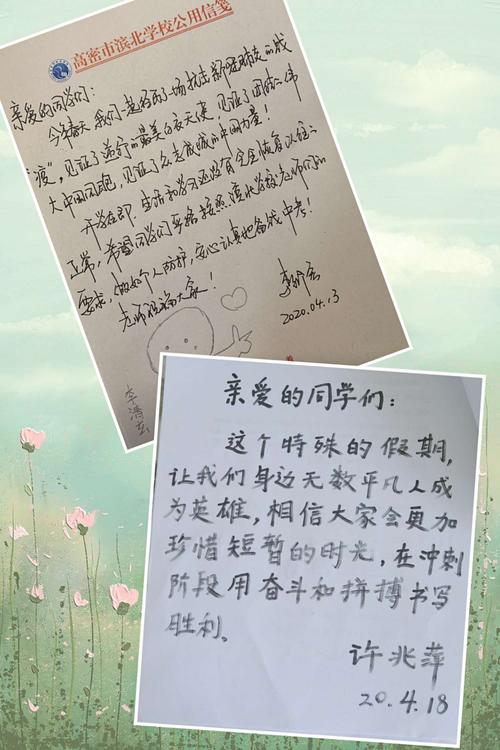 高密市滨北学校公用信笺
亲爱的同学们：
今年春天，我们一起经历了一场抗击新冠肺炎的战
“疫”，见证了逆行的最美白衣天使，见证了团结的伟
大中国同胞，见证了众志成城的中国力量！
开学在即，生活和学习还没有完全恢复以往的
正常，希望同学们严格按照滨北学校老师们的
要求，做好个人防护，安心认真地备战中考！
老师祝福大家！
2020.04.13
亲爱的同学们：
这个特殊的假期，
让我们身边无数平凡人成
为英雄，相信大家会更加
珍惜短暂的时光，在冲刺
阶段用奋斗和拼搏书写
胜利。
许兆萍
20.4.18